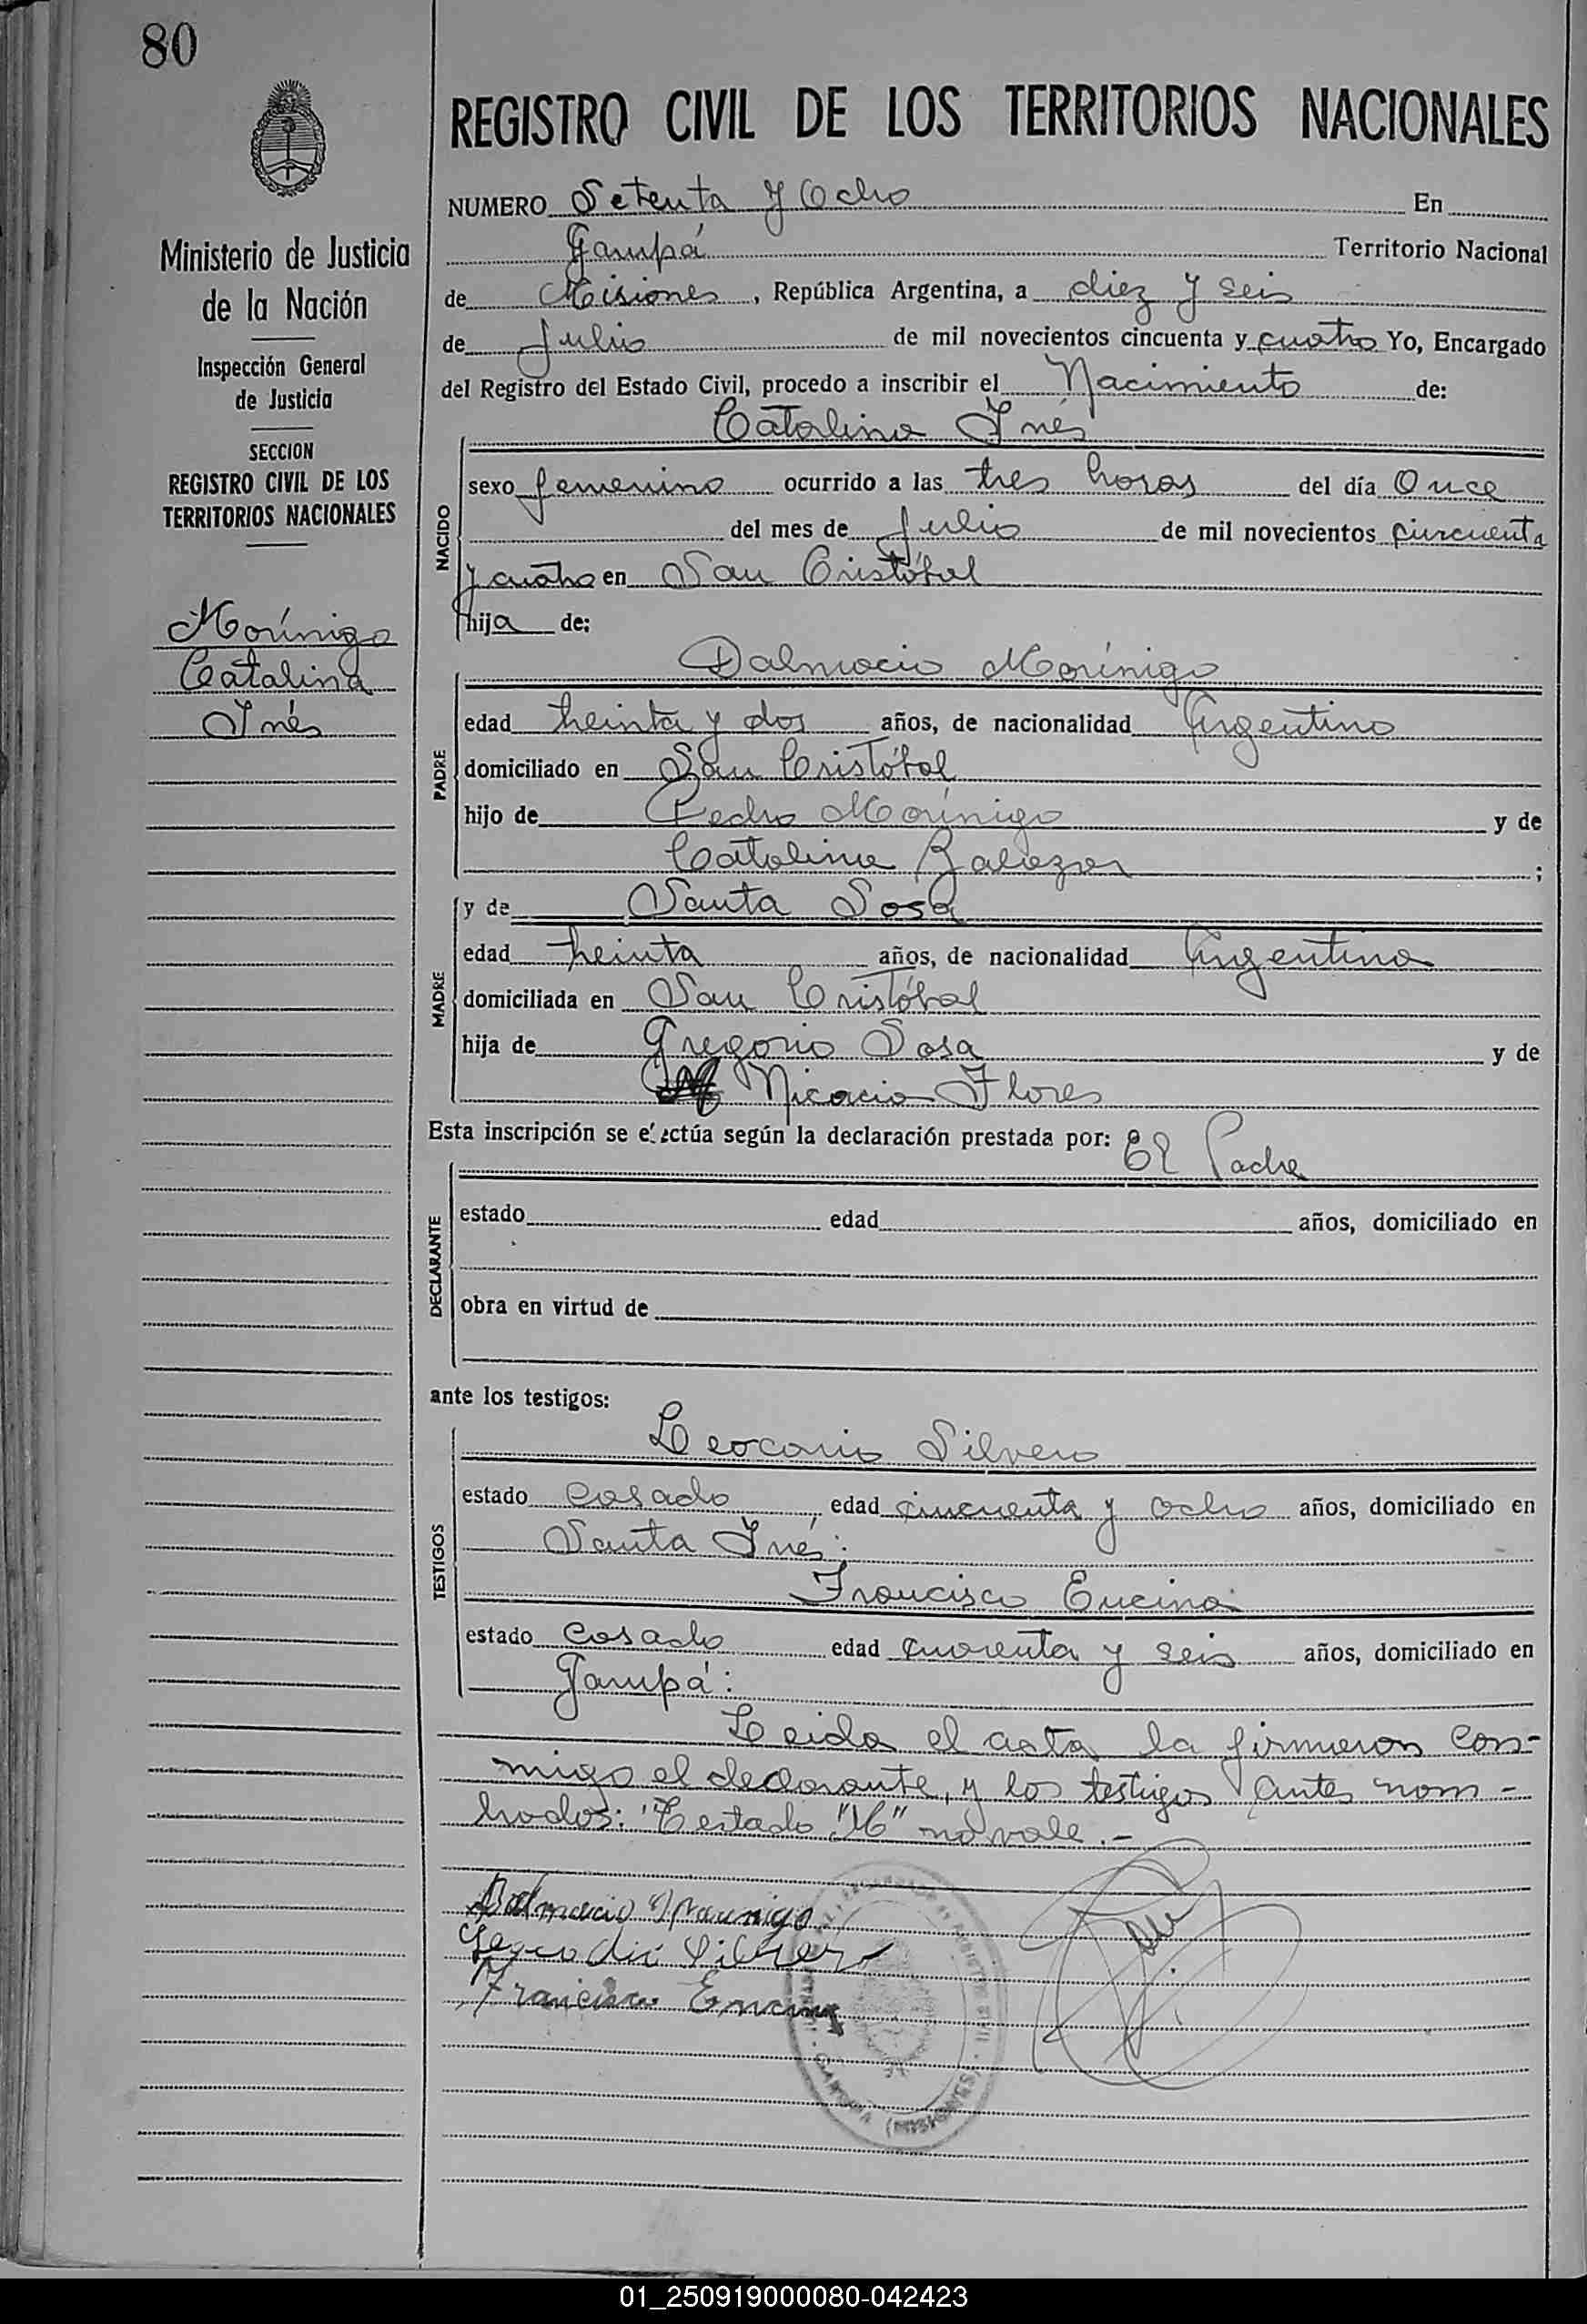 80
REGISTRO CIVIL DE LOS TERRITORIOS NACIONALES
NUMERO Setenta y Ocho En
Garupá Territorio Nacional
de Misiones, República Argentina, a diez y seis
de Julio de mil novecientos cincuenta y cuatro Yo, Encargado
del Registro del Estado Civil, procedo a inscribir el Nacimiento de:
Ministerio de Justicia
de la Nación
Inspección General
de Justicia
SECCION
REGISTRO CIVIL DE LOS
TERRITORIOS NACIONALES
Morínigo
Catalina
Inés
NACIDO
Catalina Inés
sexo femenino ocurrido a las tres horas del día Once
del mes de Julio de mil novecientos cincuenta
y cuatro en San Cristóbal
hija de:
PADRE
Dalmacio Morínigo
edad treinta y dos años, de nacionalidad Argentino
domiciliado en San Cristóbal
hijo de Pedro Morínigo y de
Catalina ;
MADRE
y de Santa Sosa
edad treinta años, de nacionalidad Argentina
domiciliada en San Cristóbal
hija de Gregorio Sosa y de
Nicacia Flores
Esta inscripción se efectúa según la declaración prestada por: El Padre
DECLARANTE
estado edad años, domiciliado en
obra en virtud de
ante los testigos:
TESTIGOS
Leocario Silvero
estado casado edad cincuenta y ocho años, domiciliado en
Santa Inés:
Francisco Encina
estado casado edad cuarenta y seis años, domiciliado en
Garupá:
Leida el acta la firmaron con-
migo el declarante, y los testigos antes nom-
brados: Testado "M" no vale.-
Dalmacio Morinigo
Silvero
Francisco Encina
(MISIONES)
01_250919000080-042423